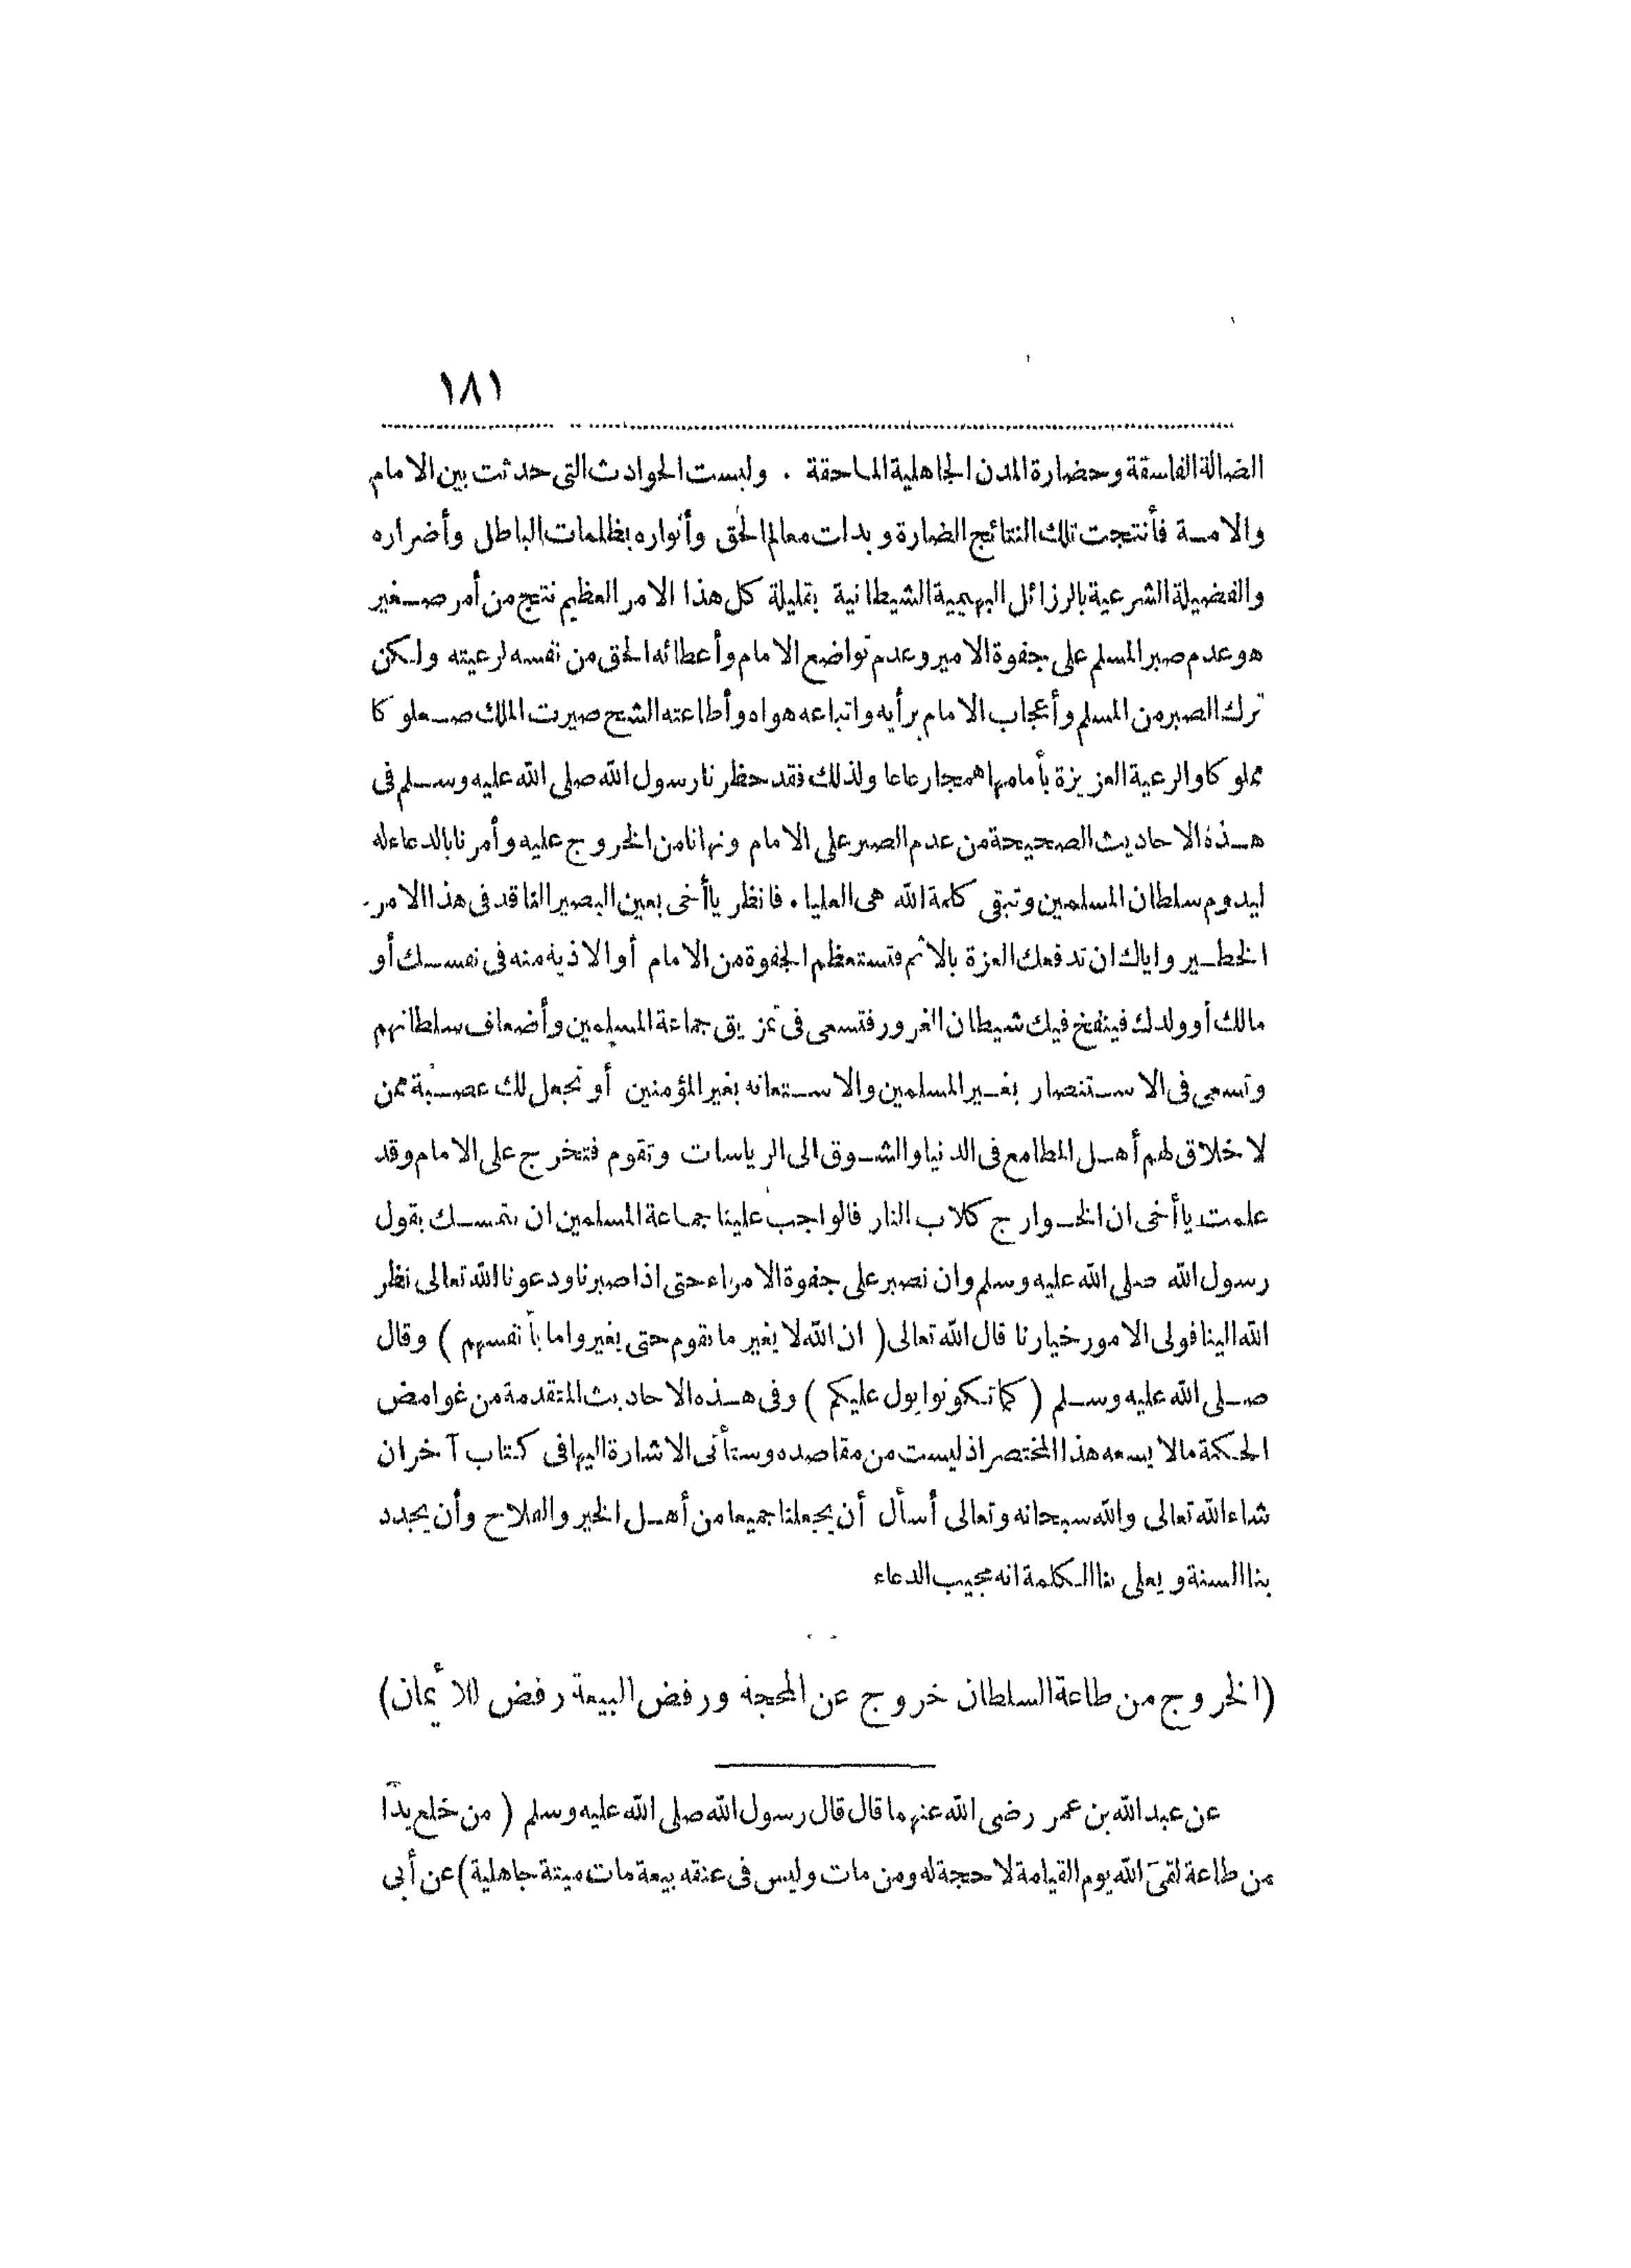 ١٨١
الضالة الفاسقة وحضارة المدن الجاهلية الماحقة . وليست الحوادث التى حدثت بين الامام
والامة فأنتجت تلك النتائج الضارة وبدلت معالم الحق وأنواره بظلمات الباطل وأضراره
والفضيلة الشرعية بالرزائل البهيمية الشيطانية بقليلة كل هذا الامر العظيم نتج من أمر صغير
هو عدم صبر المسلم على جفوة الامير وعدم تواضع الامام وأعطائه الحق من نفسه لرعيته ولكن
ترك الصبر من المسلم وأعجاب الامام برأيه واتباعه هواه وأطاعته الشح صيرت الملك صعلوكا
مملوكا والرعية العزيزة بأمامها همجا رعاعا ولذلك فقد حظرنا رسول الله صلى الله عليه وسلم فى
هذه الاحاديث الصحيحة من عدم الصبر على الامام ونهانا من الخروج عليه وأمرنا بالدعاء له
ليدوم سلطان المسلمين وتبقى كلمة الله هى العليا . فانظر ياأخى بعين البصير الناقد فى هذا الامر
الخطير واياك ان تدفعك العزة بالاثم فتستعظم الجفوة من الامام أو الاذية منه فى نفسك أو
مالك أو ولدك فينفخ فيك شيطان الغرور فتسعى فى تمزيق جماعة المسلمين وأضعاف سلطانهم
وتسعى فى الاستنصار بغير المسلمين والاستعانه بغير المؤمنين أو تجعل لك عصبة ممن
لا خلاق لهم أهل المطامع فى الدنيا والشوق الى الرياسات وتقوم فتخرج على الامام وقد
علمت ياأخى ان الخوارج كلاب النار فالواجب علينا جماعة المسلمين ان نتمسك بقول
رسول الله صلى الله عليه وسلم وان نصبر على جفوة الامراء حتى اذا صبرنا ودعونا الله تعالى نظر
الله الينا فولى الامور خيارنا قال الله تعالى ( ان الله لا يغير ما بقوم حتى يغيروا ما بأنفسهم ) وقال
صلى الله عليه وسلم ( كما تكونوا يول عليكم ) وفى هذه الاحاديث المتقدمة من غوامض
الحكمة مالا يسعه هذا المختصر اذ ليست من مقاصده وستأتى الاشارة اليها فى كتاب آخر ان
شاء الله تعالى والله سبحانه وتعالى أسأل أن يجعلنا جميعا من أهل الخير والفلاح وأن يجدد
بنا السنة ويعلى بنا الكلمة انه مجيب الدعاء
(الخروج من طاعة السلطان خروج عن المحجة ورفض البيعة رفض للأيمان)
عن عبد الله بن عمر رضى الله عنهما قال قال رسول الله صلى الله عليه وسلم ( من خلع يدًا
من طاعة لقىَ الله يوم القيامة لا حجة له ومن مات وليس فى عنقه بيعة مات ميتة جاهلية) عن أبى